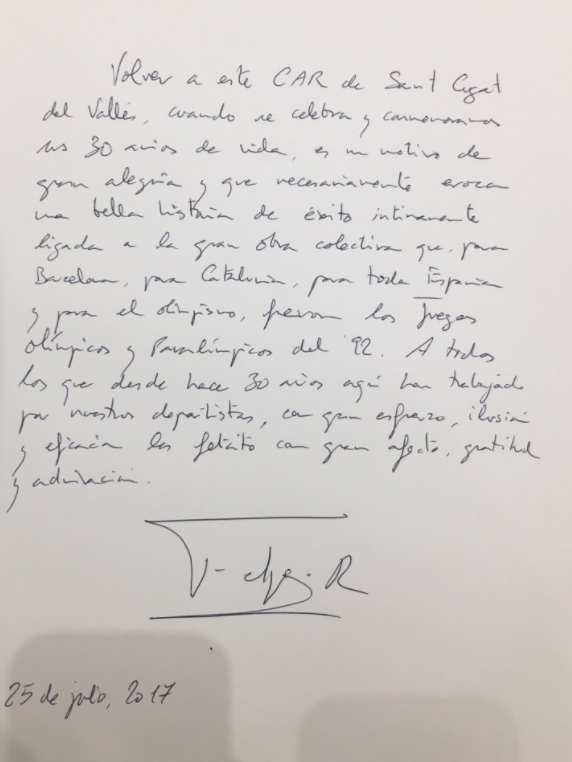 Volver a este CAR de Sant Cugat
del Vallés, cuando se celebra y conmemoramos
sus 30 años de vida, es un motivo de
gran alegría y que necesariamente evoca
una bella historia de éxito íntimamente
ligada a la gran obra colectiva que, para
Barcelona, para Cataluña, para toda España
y para el olimpismo, fueron los Juegos
Olímpicos y Paralímpicos del '92. A todos
los que desde hace 30 años aquí han trabajado
por nuestros deportistas, con gran esfuerzo, ilusión
y eficacia les felicito con gran afecto, gratitud
y admiración.
25 de julio, 2017